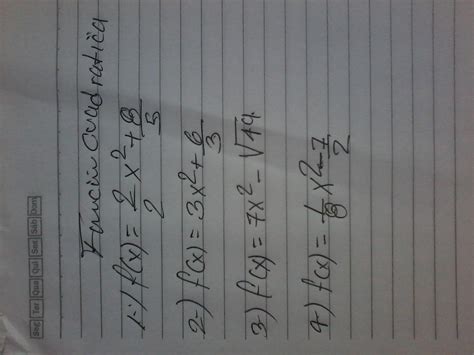 Seg Ter Qua Qui Sex Sáb Dom
Función cuadratica
1-) f(x) = 2/2 x² + 8/5
2-) f(x) = 3x² + 6/3
3-) f(x) = 7x² - √14
4-) f(x) = 1/8 x² - 7/2